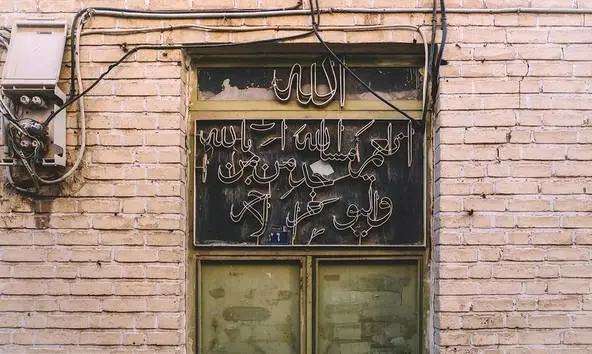 الله
انما يعمر مساجد الله من امن بالله
واليوم الاخر